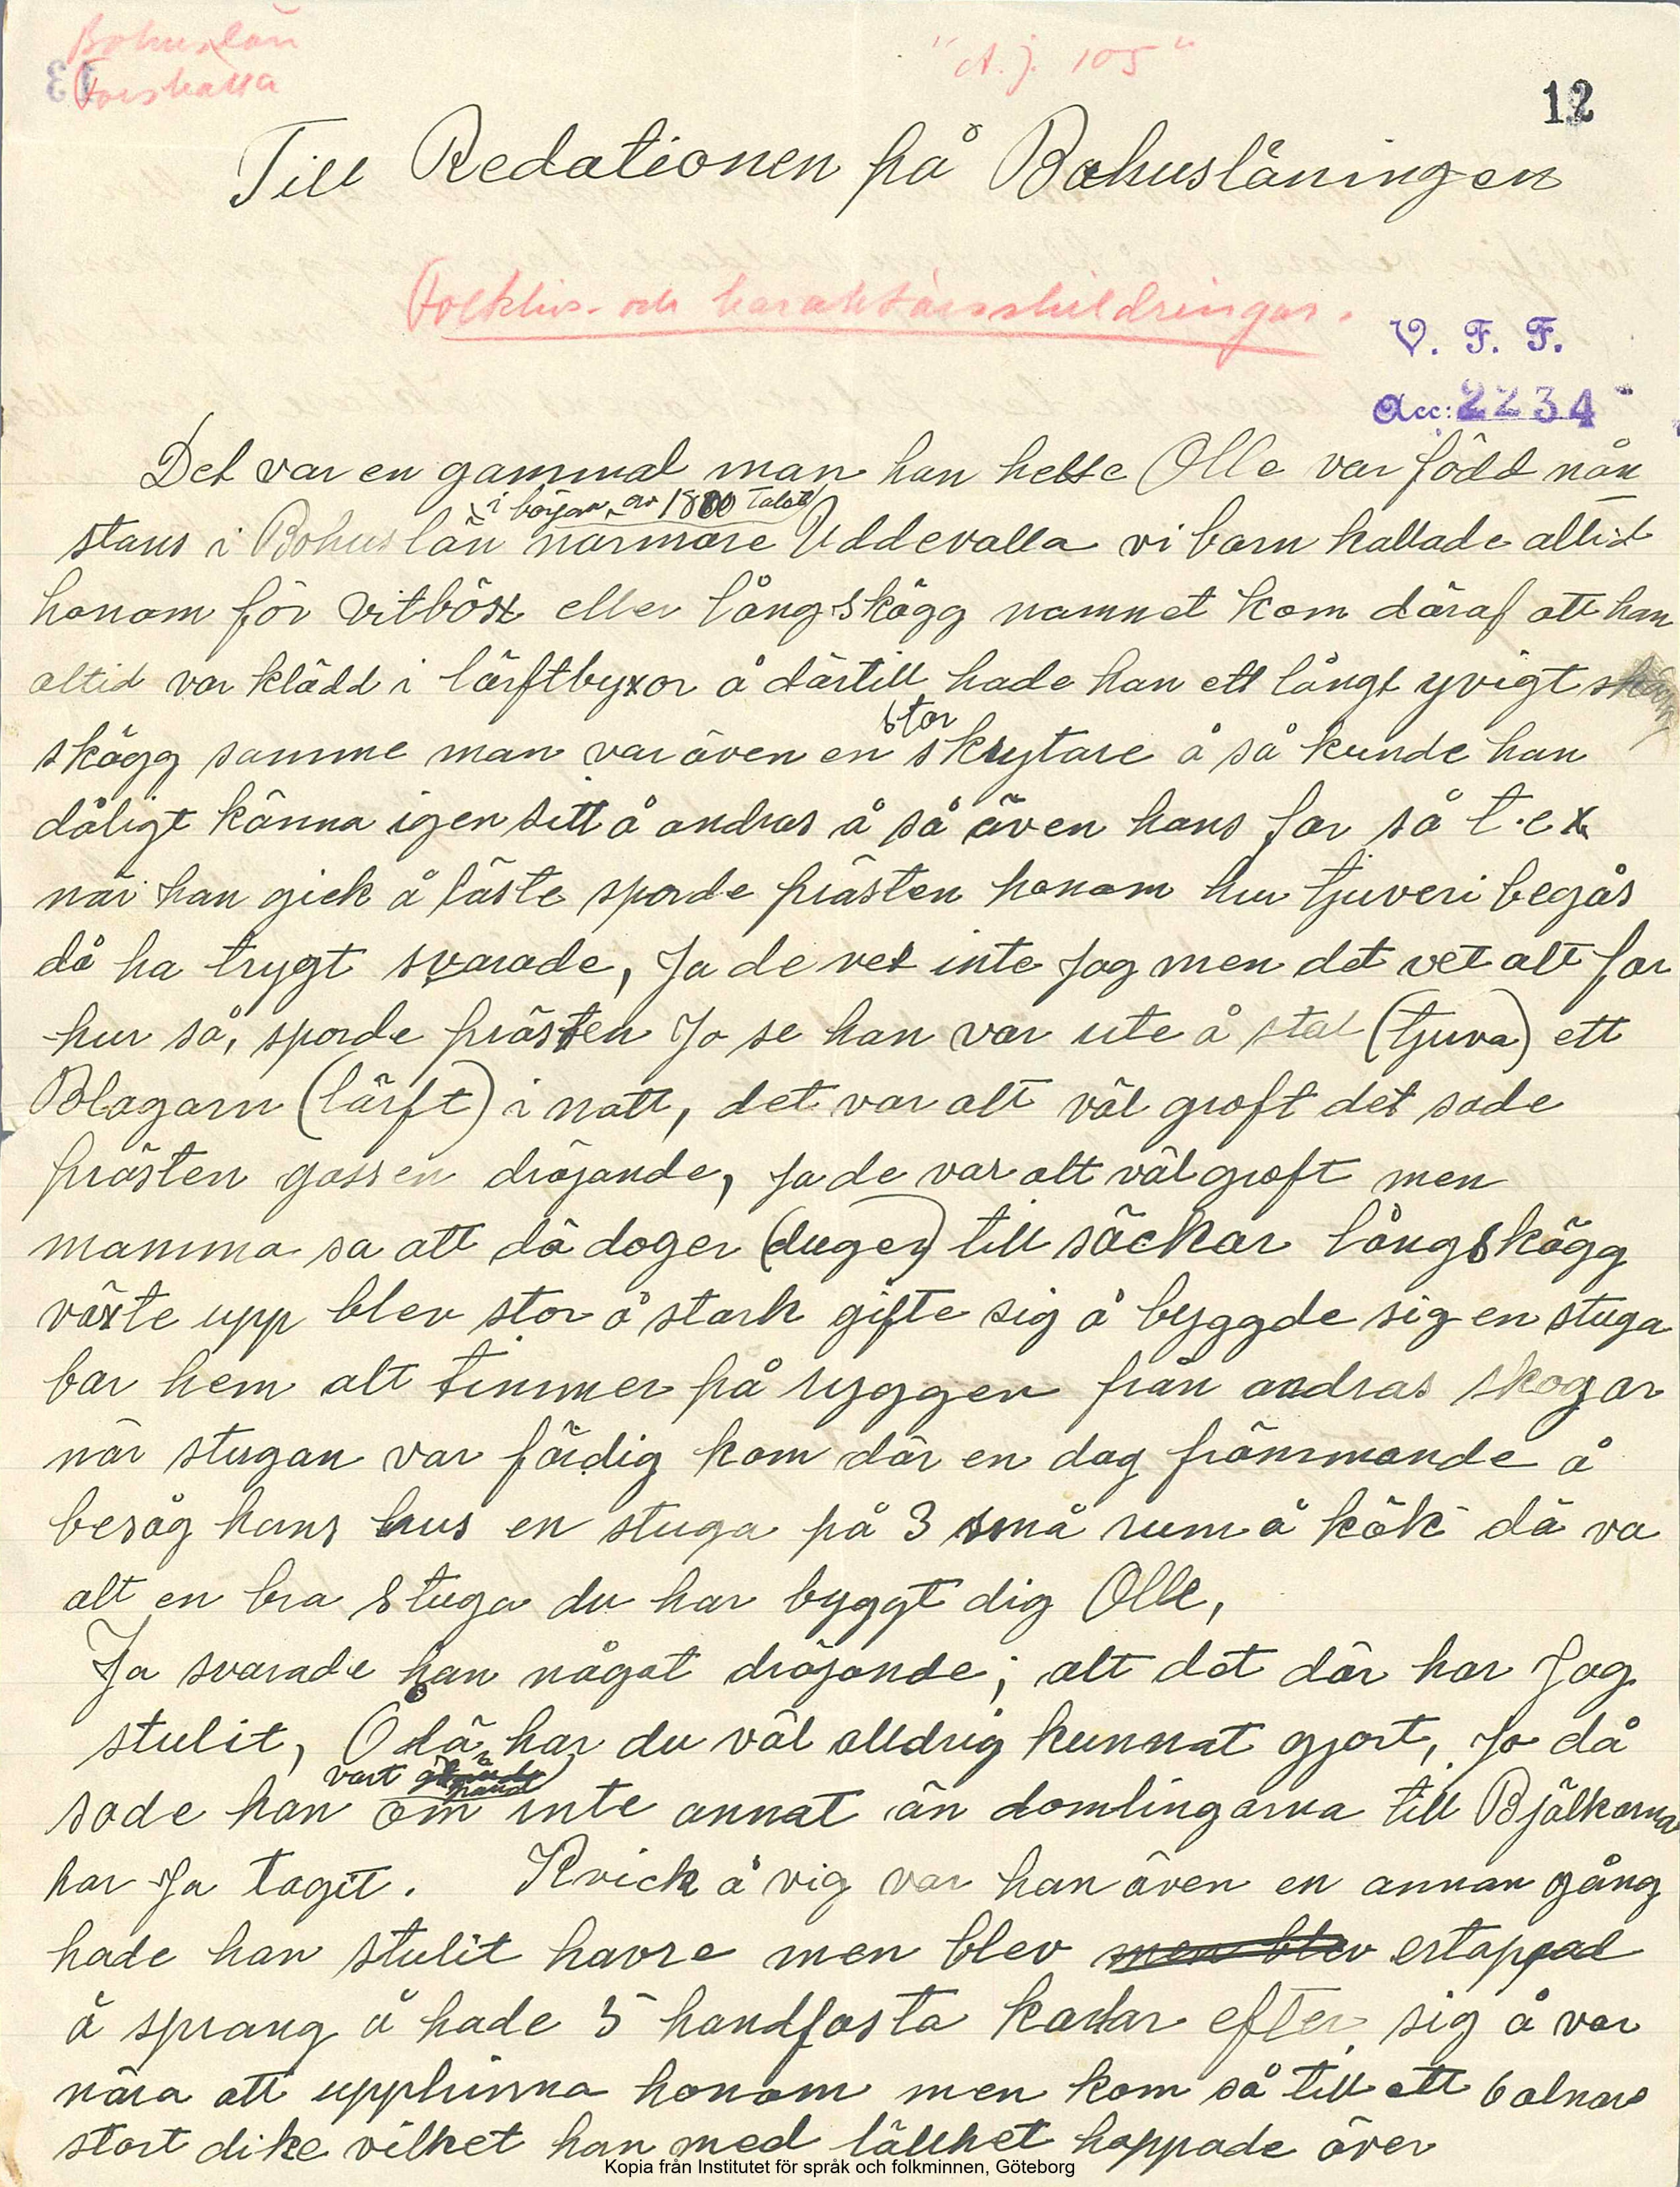 Bohuslän
Forshälla
"A. j. 105"
12
Till Redationen på Bohusläningen
Folklivs- och karaktärsskildringar.
V. F. F.
Acc: 2234
Det var en gammal man han hette Olle var född nån
i början av 1800 Talet
stans i Bohuslän närmare Uddevalla vi barn kallade altid
honom för Vitböx eller långskägg namnet kom däraf att han
altid var klädd i lärftbyxor å därtill hade han ett långt yvigt
stor
skägg samme man var även en skrytare å så kunde han
dåligt känna igen sitt å andras å så även hans far så t.ex
när han gick å läste sporde prästen honom hur tjuveri begås
då ha trygt svarade, Ja de vet inte Jag men det vet alt far
hur så, sporde prästen Jo se han var ute å stal (tjuva) ett
Blagarn (lärft) i natt, det var alt väl groft det sade
prästen gossen dröjande, Ja de var alt väl groft men
mamma sa att dä doger (duger) till säckar långskägg
växte upp blev stor å stark gifte sig å byggde sig en stuga
bar hem alt timmer på ryggen från andras skogar
när stugan var färdig kom där en dag främmande å
besåg hans hus en stuga på 3 små rum å kök dä va
alt en bra stuga du har byggt dig Olle,
Ja svarade han något dröjande; alt det där har Jag
stulit, Å dä har du väl alldrig kunnat gjort, Jo då
vart
sade han om inte annat än domlingarna till Bjälkarna
har Ja tagit. Kvick å vig var han även en annan gång
hade han stulit havre men blev men blev ertappad
å sprang å hade 5 handfasta karlar efter sig å var
nära att upphinna honom men kom så till ett 6 alnars
stort dike vilket han med lätthet hoppade över
Kopia från Institutet för språk och folkminnen, Göteborg